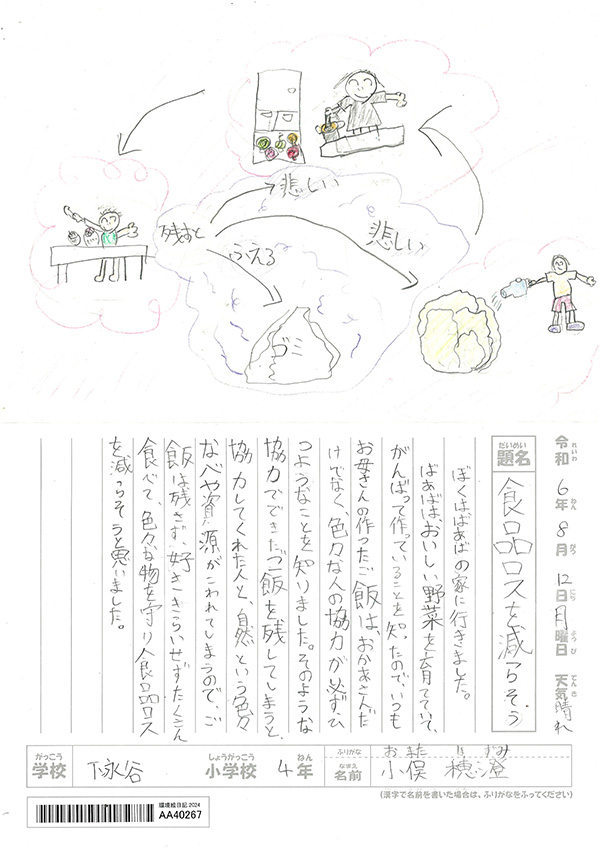 悲しい
残すと
悲しい
ふえる
ゴミ
令和6年8月12日月曜日 天気晴れ
れいわ ねん がつ にち ようび てんき
だいめい
題名 食品ロスを減らそう
ぼくはばあばの家に行きました。
ばあばは、おいしい野菜を育てていて、
がんばって作っていることを知ったので、いつも
お母さんの作ったご飯は、おかあさんだ
けでなく、色々な人の協力が必ずひ
つようなことを知りました。そのような
協力でできたご飯を残してしまうと、
協力してくれた人と、自然という色々
なべや資源がこわれてしまうので、ご
飯は残さず、好ききらいせずたくさん
食べて、色々な物を守り食品ロス
を減らそうと思いました。
がっこう しょうがっこう ねん ふりがな おまた ずみ
学校 下永谷 小学校 4年 なまえ 名前 小俣 穂澄
(漢字で名前を書いた場合は、ふりがなをふってください)
環境絵日記 2024
AA40267